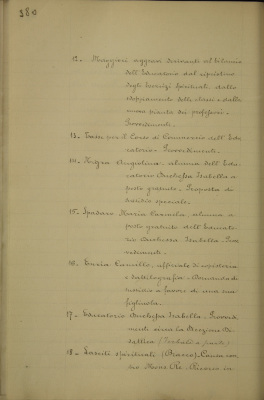 12. Maggiori aggravi derivanti al bilancio
dell'Educatorio dal ripristino
degli Esercizi Spirituali, dallo
sdoppiamento delle classi e dalla
nuova pianta dei professori -
Provvedimenti.
13. Tasse per il Corso di Commercio dell'Edu-
catorio - Provvedimenti.
14. Angiolina, alunna dell'Edu-
catorio Duchessa Isabella a
posto gratuito - Proposta di
sussidio speciale.
15. Spadaro Maria Carmela, alunna a
posto gratuito dell'Educato-
rio Duchessa Isabella. Prov-
vedimenti.
16. Carmello, affidato di
e dattilografia - Domanda di
sussidio a favore di una sua
figliuola.
17. Educatorio Duchessa Isabella - Provvedi-
menti circa la Direzione Di-
dattica
18. Lasciti spirituali - Causa con-
tro Mons. Re. Ricorso in